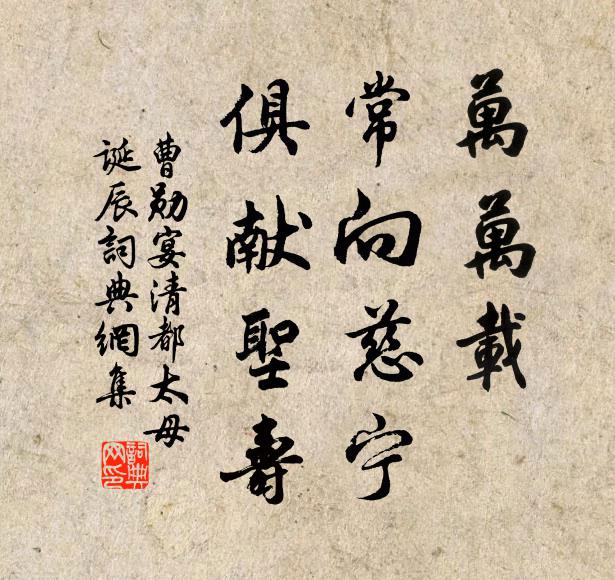 萬萬載
常向慈宁
俱献聖壽
曹勋宴清都太母
誕辰詞典網集
詞典
网印